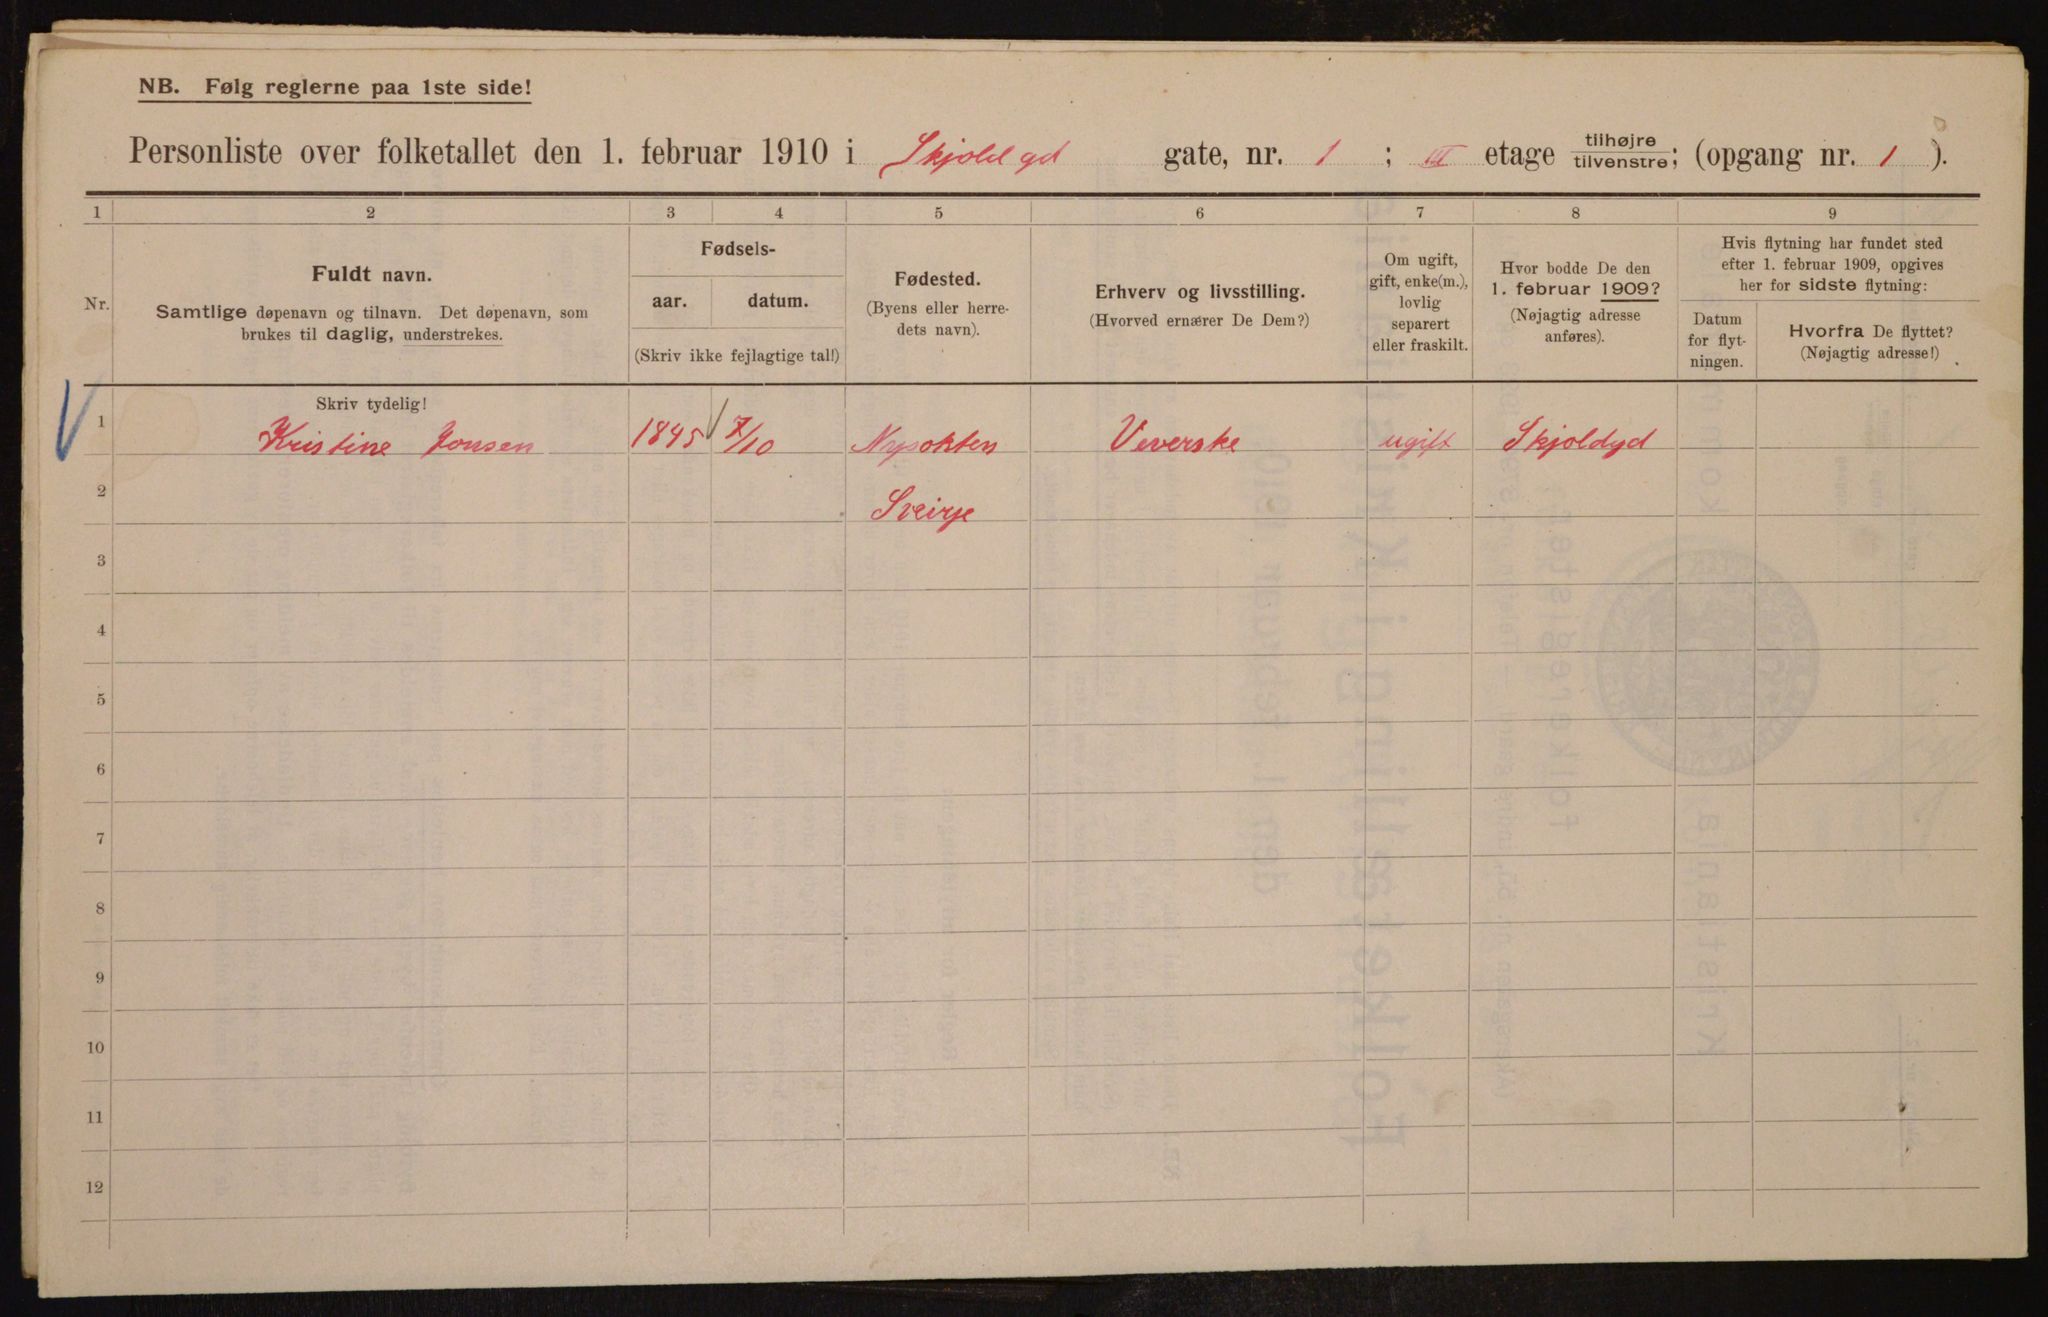 NB. Følg reglerne paa 1ste side!
Personliste over folketallet den 1. februar 1910 i Skjold gd gate, nr. 1 ; III etage tilhøjre tilvenstre; (opgang nr. 1 ).
1 2 3 4 5 6 7 8 9
Nr.
Fuldt navn.
Samtlige døpenavn og tilnavn. Det døpenavn, som
brukes til daglig, understrekes.
Fødsels-
aar. datum.
(Skriv ikke fejlagtige tal!)
Fødested.
(Byens eller herre-
dets navn).
Erhverv og livsstilling.
(Hvorved ernærer De Dem?)
Om ugift,
gift, enke(m.),
lovlig
separert
eller fraskilt.
Hvor bodde De den
1. februar 1909?
(Nøjagtig adresse
anføres).
Hvis flytning har fundet sted
efter 1. februar 1909, opgives
her for sidste flytning:
Datum
for flyt-
ningen.
Hvorfra De flyttet?
(Nøjagtig adresse!)
Skriv tydelig!
1 Kristine Jonsen 1845 7/10 Nysokten Veverske ugift Skjoldgd
2 Sveirje
3
4
5
6
7
8
9
10
11
12